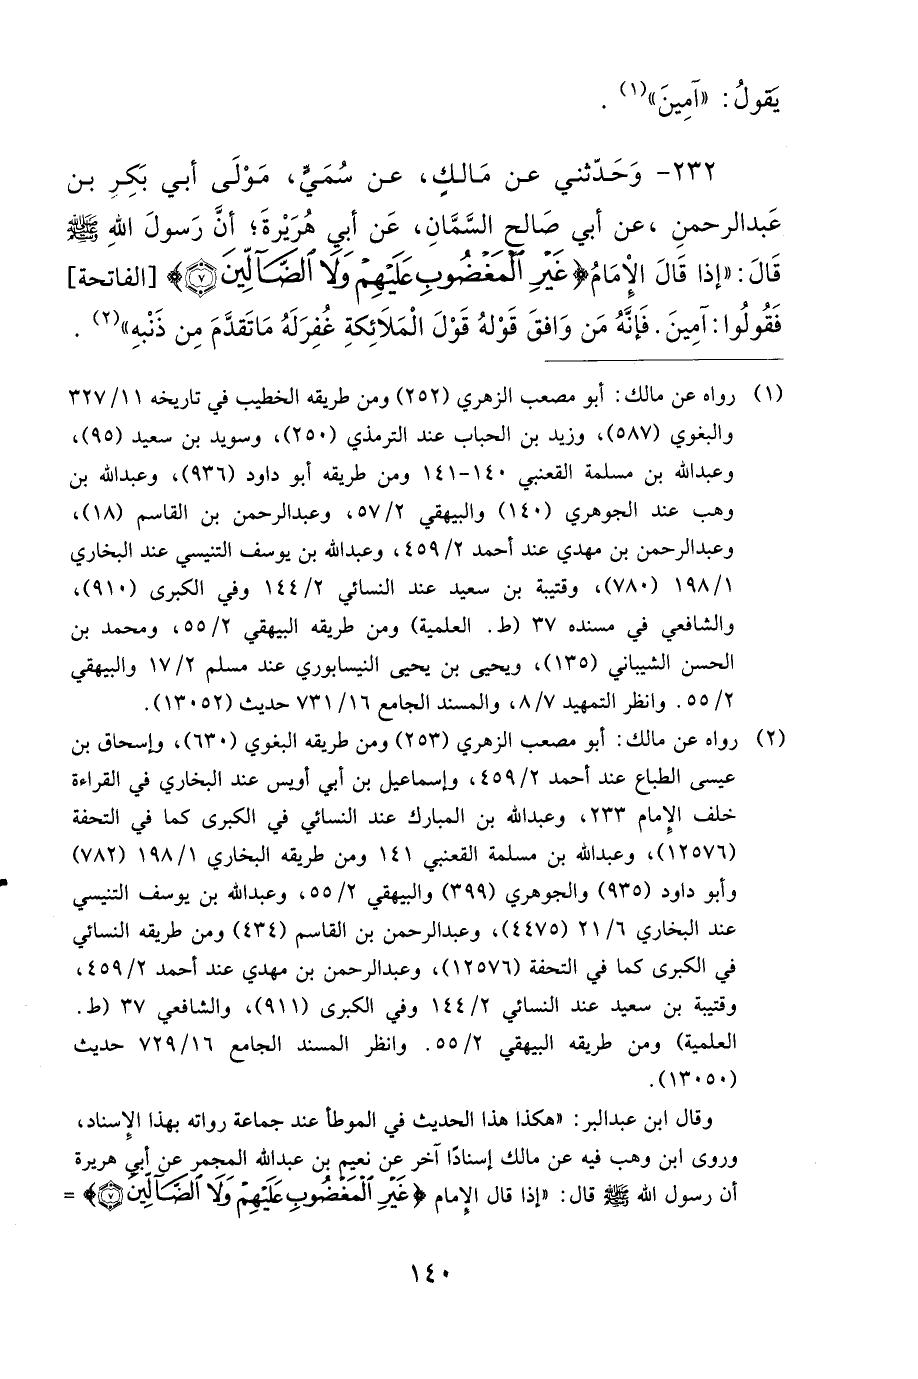 يَقولُ: «آمِينَ»(١) .
٢٣٢- وَحَدّثني عن مَالكٍ، عن سُمَيٍّ، مَوْلَى أبي بَكِرِ بن
عَبدالرحمنِ ،عن أبي صَالحٍ السَّمَّانِ، عَن أبي هُرَيْرةَ؛ أنَّ رَسولَ اللهِ ﷺ
قَالَ: «إذا قَالَ الإْمَامُ﴿غَيْرِ ٱلْمَغْضُوبِ عَلَيْهِمْ وَلَا ٱلضَّآلِّينَ ٧﴾ [الفاتحة]
فَقُولُوا: آمِينَ. فَإنَّهُ مَن وَافقَ قَوْلهُ قَوْلَ الْمَلائِكةِ غُفِرَلَهُ مَاتَقدَّمَ مِن ذَنْبهِ»(٢) .
(١) رواه عن مالك: أبو مصعب الزهري (٢٥٢) ومن طريقه الخطيب في تاريخه ٣٢٧/١١
والبغوي (٥٨٧)، وزيد بن الحباب عند الترمذي (٢٥٠)، وسويد بن سعيد (٩٥)،
وعبدالله بن مسلمة القعنبي ١٤٠-١٤١ ومن طريقه أبو داود (٩٣٦)، وعبدالله بن
وهب عند الجوهري (١٤٠) والبيهقي ٥٧/٢، وعبدالرحمن بن القاسم (١٨)،
وعبدالرحمن بن مهدي عند أحمد ٤٥٩/٢، وعبدالله بن يوسف التنيسي عند البخاري
١٩٨/١ (٧٨٠)، وقتيبة بن سعيد عند النسائي ١٤٤/٢ وفي الكبرى (٩١٠)،
والشافعي في مسنده ٣٧ (ط. العلمية) ومن طريقه البيهقي ٥٥/٢، ومحمد بن
الحسن الشيباني (١٣٥)، ويحيى بن يحيى النيسابوري عند مسلم ١٧/٢ والبيهقي
٥٥/٢. وانظر التمهيد ٨/٧، والمسند الجامع ٧٣١/١٦ حديث (١٣٠٥٢).
(٢) رواه عن مالك: أبو مصعب الزهري (٢٥٣) ومن طريقه البغوي (٦٣٠)، وإسحاق بن
عيسى الطباع عند أحمد ٤٥٩/٢، وإسماعيل بن أبي أويس عند البخاري في القراءة
خلف الإمام ٢٣٣، وعبدالله بن المبارك عند النسائي في الكبرى كما في التحفة
(١٢٥٧٦)، وعبدالله بن مسلمة القعنبي ١٤١ ومن طريقه البخاري ١٩٨/١ (٧٨٢)
وأبو داود (٩٣٥) والجوهري (٣٩٩) والبيهقي ٥٥/٢، وعبدالله بن يوسف التنيسي
عند البخاري ٢١/٦ (٤٤٧٥)، وعبدالرحمن بن القاسم (٤٣٤) ومن طريقه النسائي
في الكبرى كما في التحفة (١٢٥٧٦)، وعبدالرحمن بن مهدي عند أحمد ٤٥٩/٢،
وقتيبة بن سعيد عند النسائي ١٤٤/٢ وفي الكبرى (٩١١)، والشافعي ٣٧ (ط.
العلمية) ومن طريقه البيهقي ٥٥/٢. وانظر المسند الجامع ٧٢٩/١٦ حديث
(١٣٠٥٠).
وقال ابن عبدالبر: «هكذا هذا الحديث في الموطأ عند جماعة رواته بهذا الإسناد،
وروى ابن وهب فيه عن مالك إسنادًا آخر عن نعيم بن عبدالله المجمر عن أبي هريرة
أن رسول الله ﷺ قال: «إذا قال الإمام ﴿غَيْرِ ٱلْمَغْضُوبِ عَلَيْهِمْ وَلَا ٱلضَّآلِّينَ ٧﴾ =
١٤٠